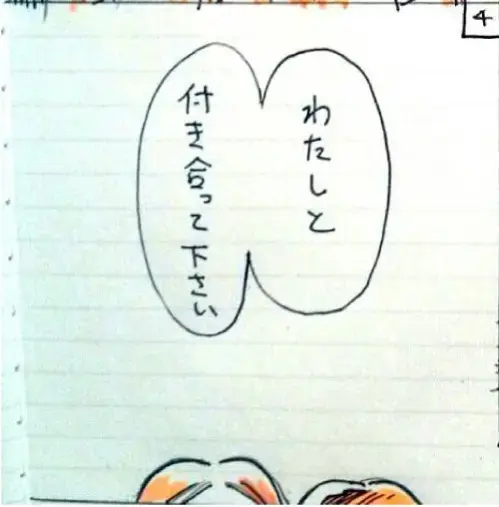 4
わたしと
付き合って下さい